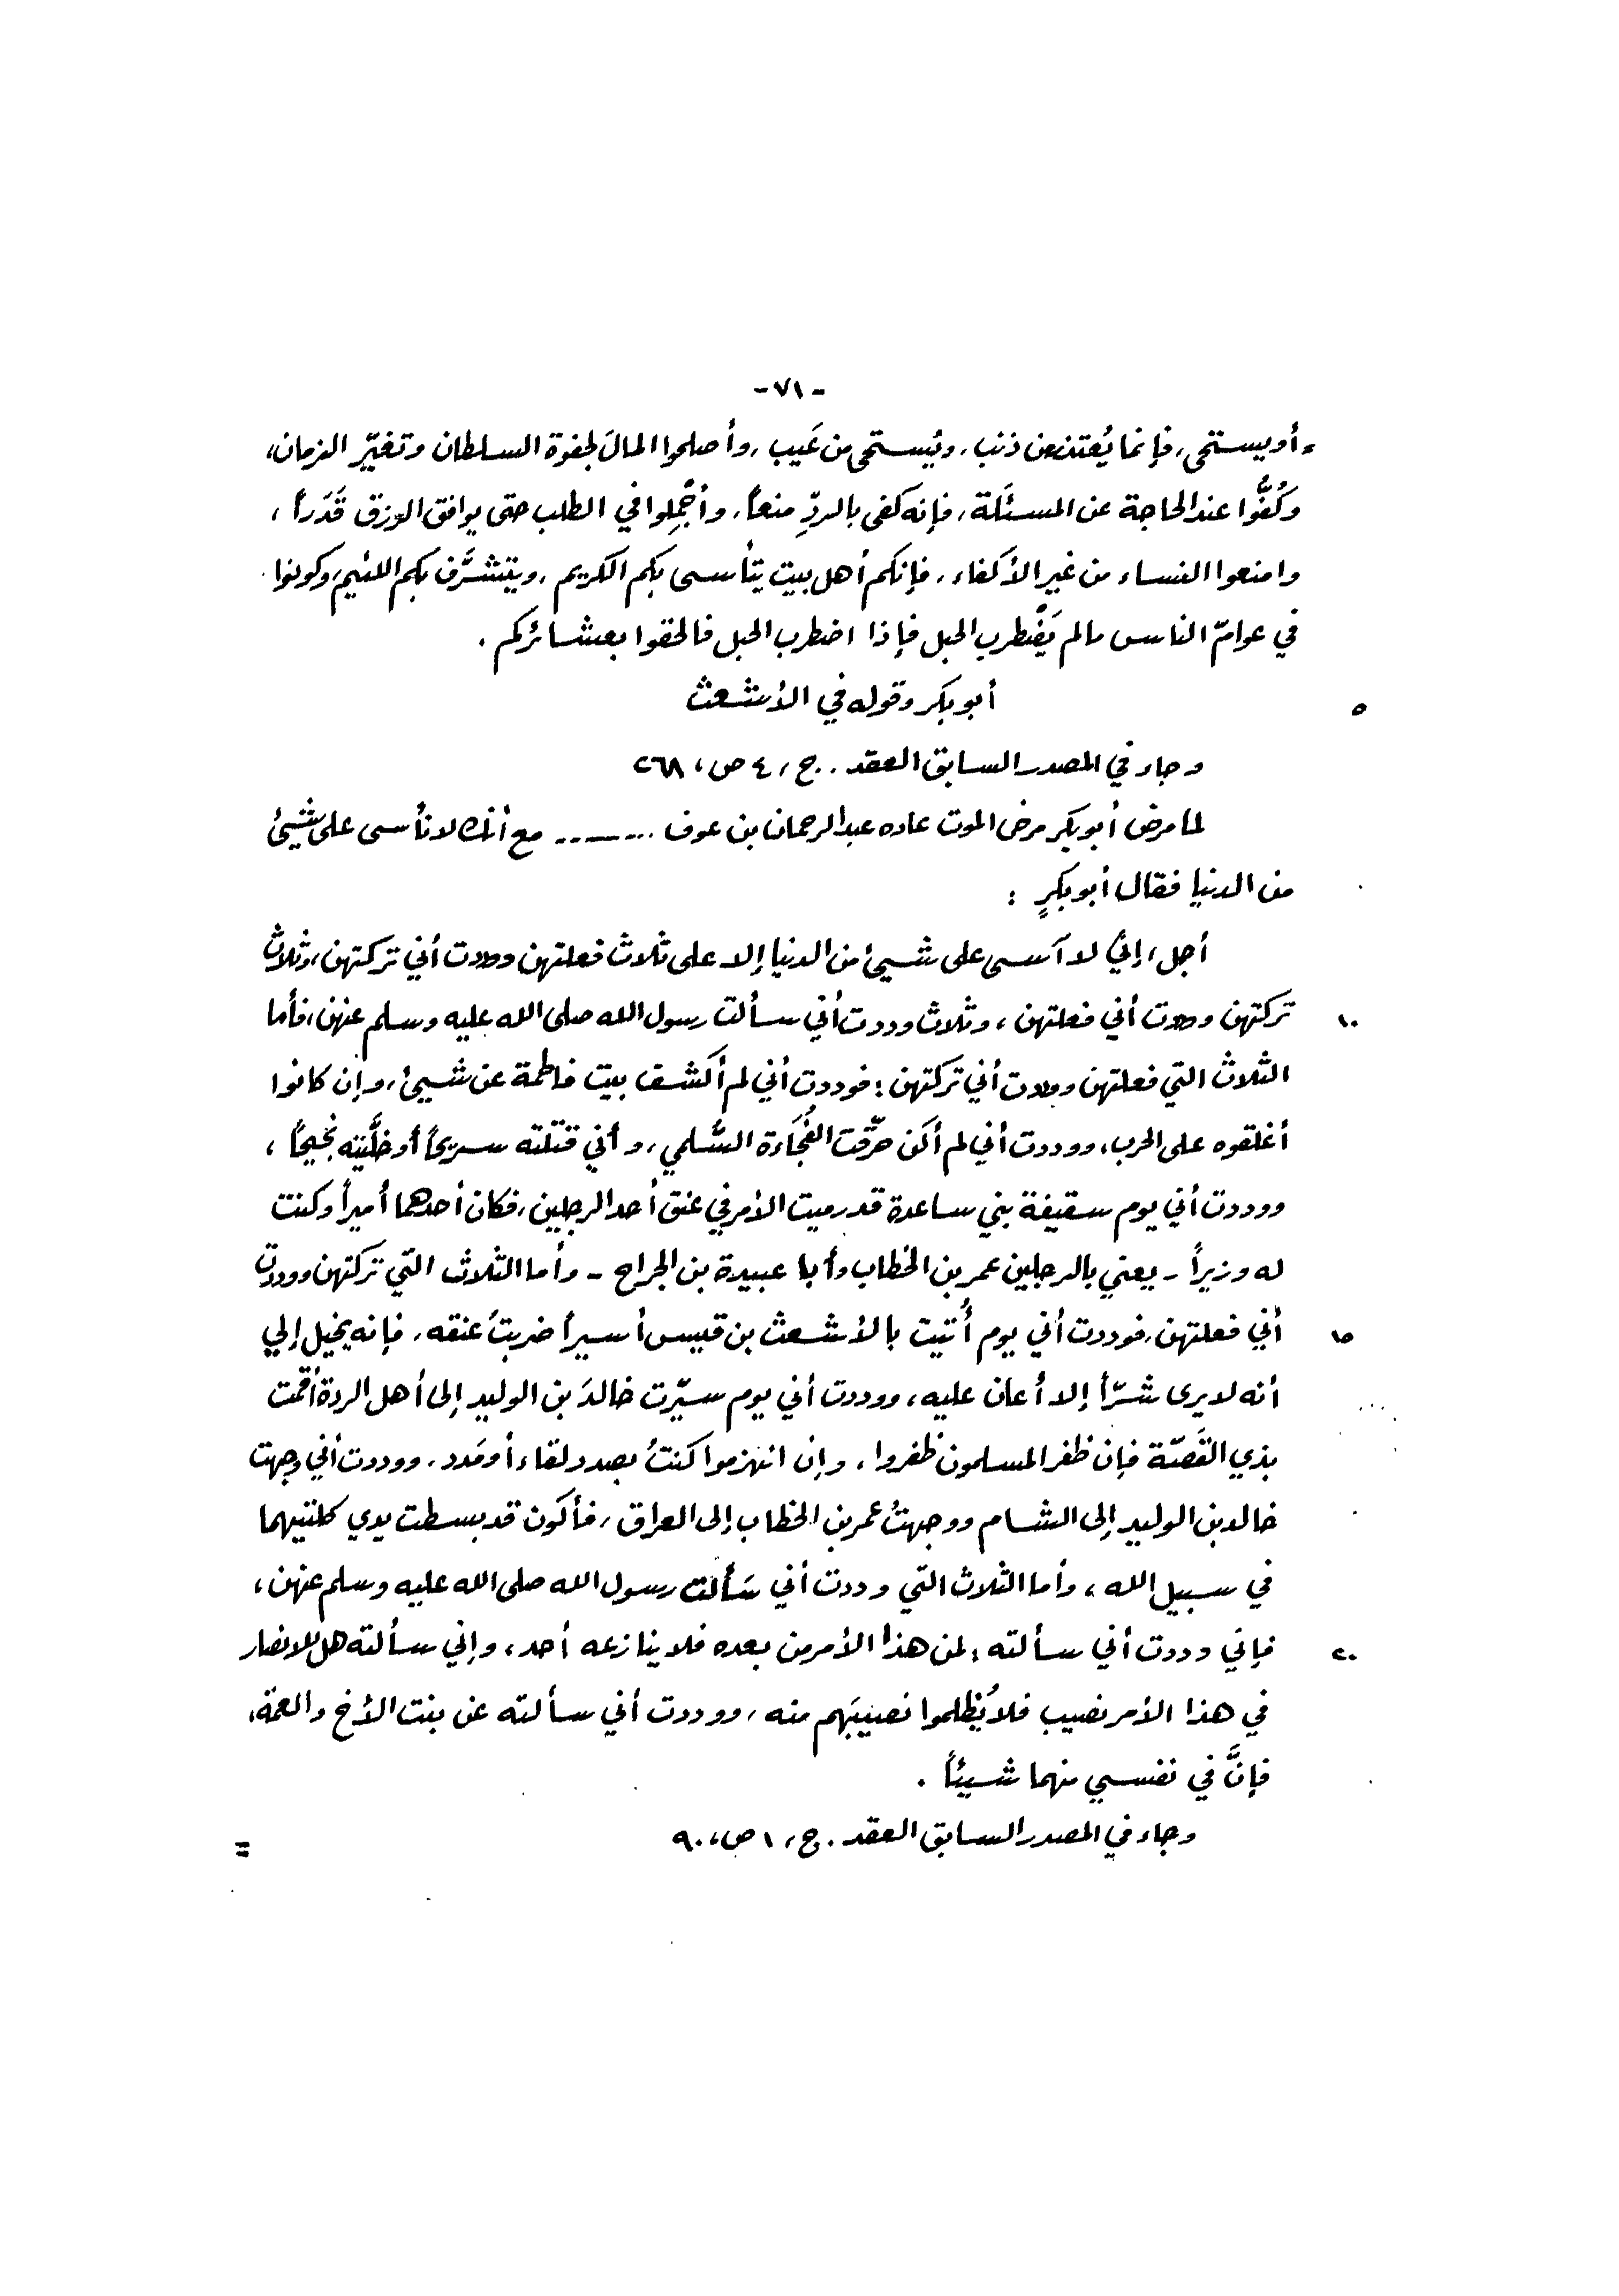 -٧١-
= أو يستحى، فإنما يُعتذر من ذنب، ويُستحى من عَيب، وأصلحوا المالَ لجفوة السلطان وتغيّر الزمان،
وكُفُّوا عند الحاجة عن المسئَلة، فإنه كفى بالردِّ منعاً، وأجْمِلوا في الطلب حتى يوافق الرزق قَدَراً،
وامنعوا النساء من غير الأكفاء، فإنكم أهل بيت يتأسى بكم الكريم، ويتشرَّف بكم اللئيم، وكونوا
في عوامّ الناس مالم يَضْطرب الحبل فإذا اضطرب الحبل فالحقوا بعشائركم.
٥ أبو بكر وقوله في الأشعث
وجاء في المصدر السابق العقد .. ج، ٤ ص، ٢٦٨
لما مرض أبو بكر مرض الموت عاده عبد الرحمان بن عوف ........ مع أنك لا تأسى على شيئ
من الدنيا فقال أبو بكرٍ :
أجل، إنّي لا آسى على شيئ من الدنيا إلا على ثلاث فعلتهن ووددت أني تركتهن، وثلاث
١٠ تركتهن ووددت أني فعلتهن، وثلاث وددت أني سألت رسول الله صلى الله عليه وسلم عنهن، فأما
الثلاث التي فعلتهن ووددت أني تركتهن: فوددت أني لم أكشف بيت فاطمة عن شيئ، وإن كانوا
أغلقوه على الحرب، ووددت أني لم أكن حرّقت الفُجَاءَة السُّلمي، وأني قتلته سريحاً أو خلَّيته نجيحاً،
ووددت أني يوم سقيفة بني ساعدة قد رميت الأمر في عنق أحد الرجلين، فكان أحدهما أميراً وكنت
له وزيراً - يعني بالرجلين عمر بن الخطاب وأبا عبيدة بن الجراح - وأما الثلاث التي تركتهن ووددت
١٥ أني فعلتهن، فوددت أني يوم أُتيت بالأشعث بن قيس أسيراً ضربتُ عنقه، فإنه يخيل إلي
أنه لا يرى شرّاً إلا أعان عليه، ووددت أني يوم سيّرت خالدَ بن الوليد إلى أهل الردة أقمت
بذي القَصّة فإن ظفر المسلمون ظفروا، وإن انهزموا كنتُ بصدد لقاء أو مَدد، ووددت أني وجهت
خالد بن الوليد إلى الشام ووجهتُ عمر بن الخطاب إلى العراق، فأكون قد بسطت يدي كلتيهما
في سبيل الله، وأما الثلاث التي وددت أني سَألت رسول الله صلى الله عليه وسلم عنهن،
٢٠ فإني وددت أني سألته: لمن هذا الأمر من بعده فلا ينازعه أحد، وإني سألته هل للانصار
في هذا الأمر نصيب فلا يُظلموا نصيبَهم منه، ووددت أني سألته عن بنت الأخ والعمة،
فإنَّ في نفسي منهما شيئاً.
وجاء في المصدر السابق العقد . ج، ١ ص، ٩٠
=